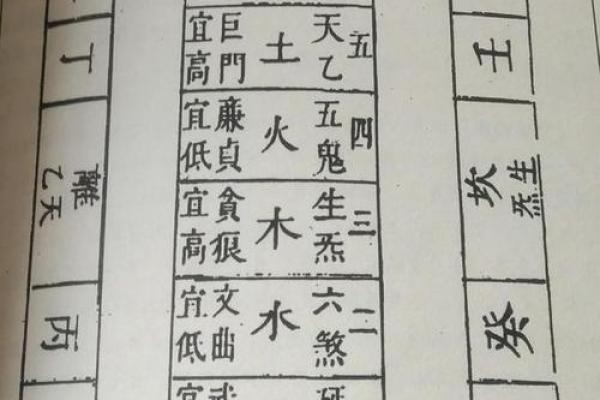 壬
坎
生炁
癸
五
天乙
土
巨門
宜高
四
五鬼
火
廉貞
宜低
三
生炁
木
貪狠
宜高
二
六煞
水
文曲
宜低
丁
離
乙天
丙